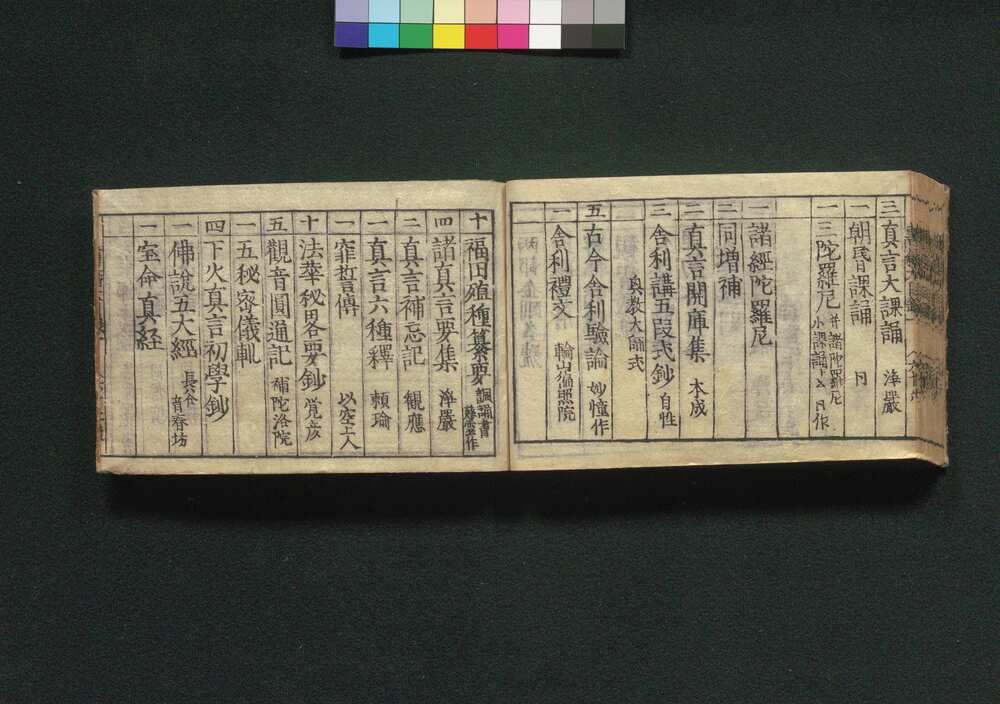 三 真言大課誦 浄嚴
一 朝昏課誦 同
三 陀羅尼 并諸陀羅尼 小課誦 同作
一 諸經陀羅尼
二 同増補
二 真言開庫集 本成
三 舎利講五段式鈔 自性
興教大師式
五 古今舎利驗論 妙幢作
一 舎利禮文 輪山徧照院
十 福田殖種纂要 諷誦書
四 諸真言要集 浄嚴
二 真言補忘記 観應
一 真言六種釋 頼瑜
一 窂誓傳 以空上人
十 法華秘畧要鈔 覚彦
五 觀音圓通記 補陀洛院
一 五秘密儀軌
四 下火真言初學鈔
一 佛説五大經 長谷 音春坊
一 室命真経